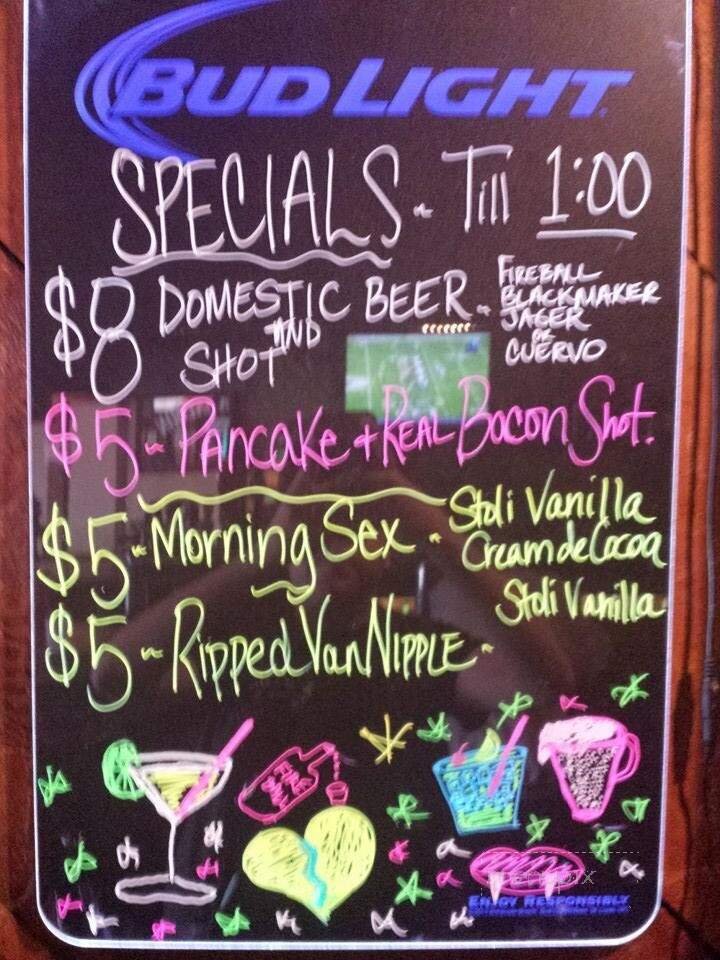 BUD LIGHT
SPECIALS - Till 1:00
$8 DOMESTIC BEER - FIREBALL
BLACKMAKER
JAGER
OR
CUERVO
AND
SHOT
$5 - PANCAKE + REAL Bacon Shot.
$5 - Morning Sex - Stoli Vanilla
Cream de Cocoa
$5 - Ripped Van NIPPLE - Stoli Vanilla
ENJOY RESPONSIBLY